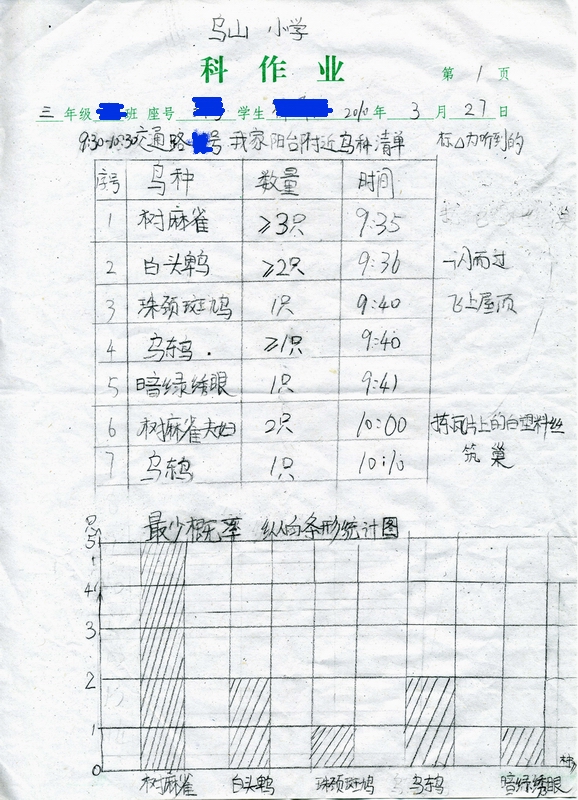 乌山 小学
科 作 业 第 1 页
三 年级 班 座号 学生 2010 年 3 月 27 日
9:30-10:30交通路 号 我家阳台附近鸟种清单 标△为听到的
序号 鸟种 数量 时间
1 树麻雀 ≥3只 9:35
2 白头鹎 ≥2只 9:36 一闪而过
3 珠颈斑鸠 1只 9:40 飞上屋顶
4 乌鸫 ≥1只 9:40
5 暗绿绣眼 1只 9:41
6 树麻雀夫妇 2只 10:00 拣瓦片上的白塑料丝
筑巢
7 乌鸫 1只 10:10
最少概率 纵向条形统计图
只
5
4
3
2
1
0
树麻雀 白头鹎 珠颈斑鸠 乌鸫 暗绿绣眼